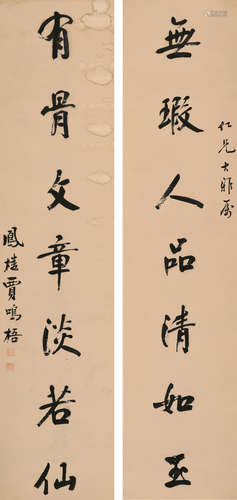 無瑕人品清如玉
仁兄大雅屬
有骨文章淡若仙
鳳樓賈鳴梧